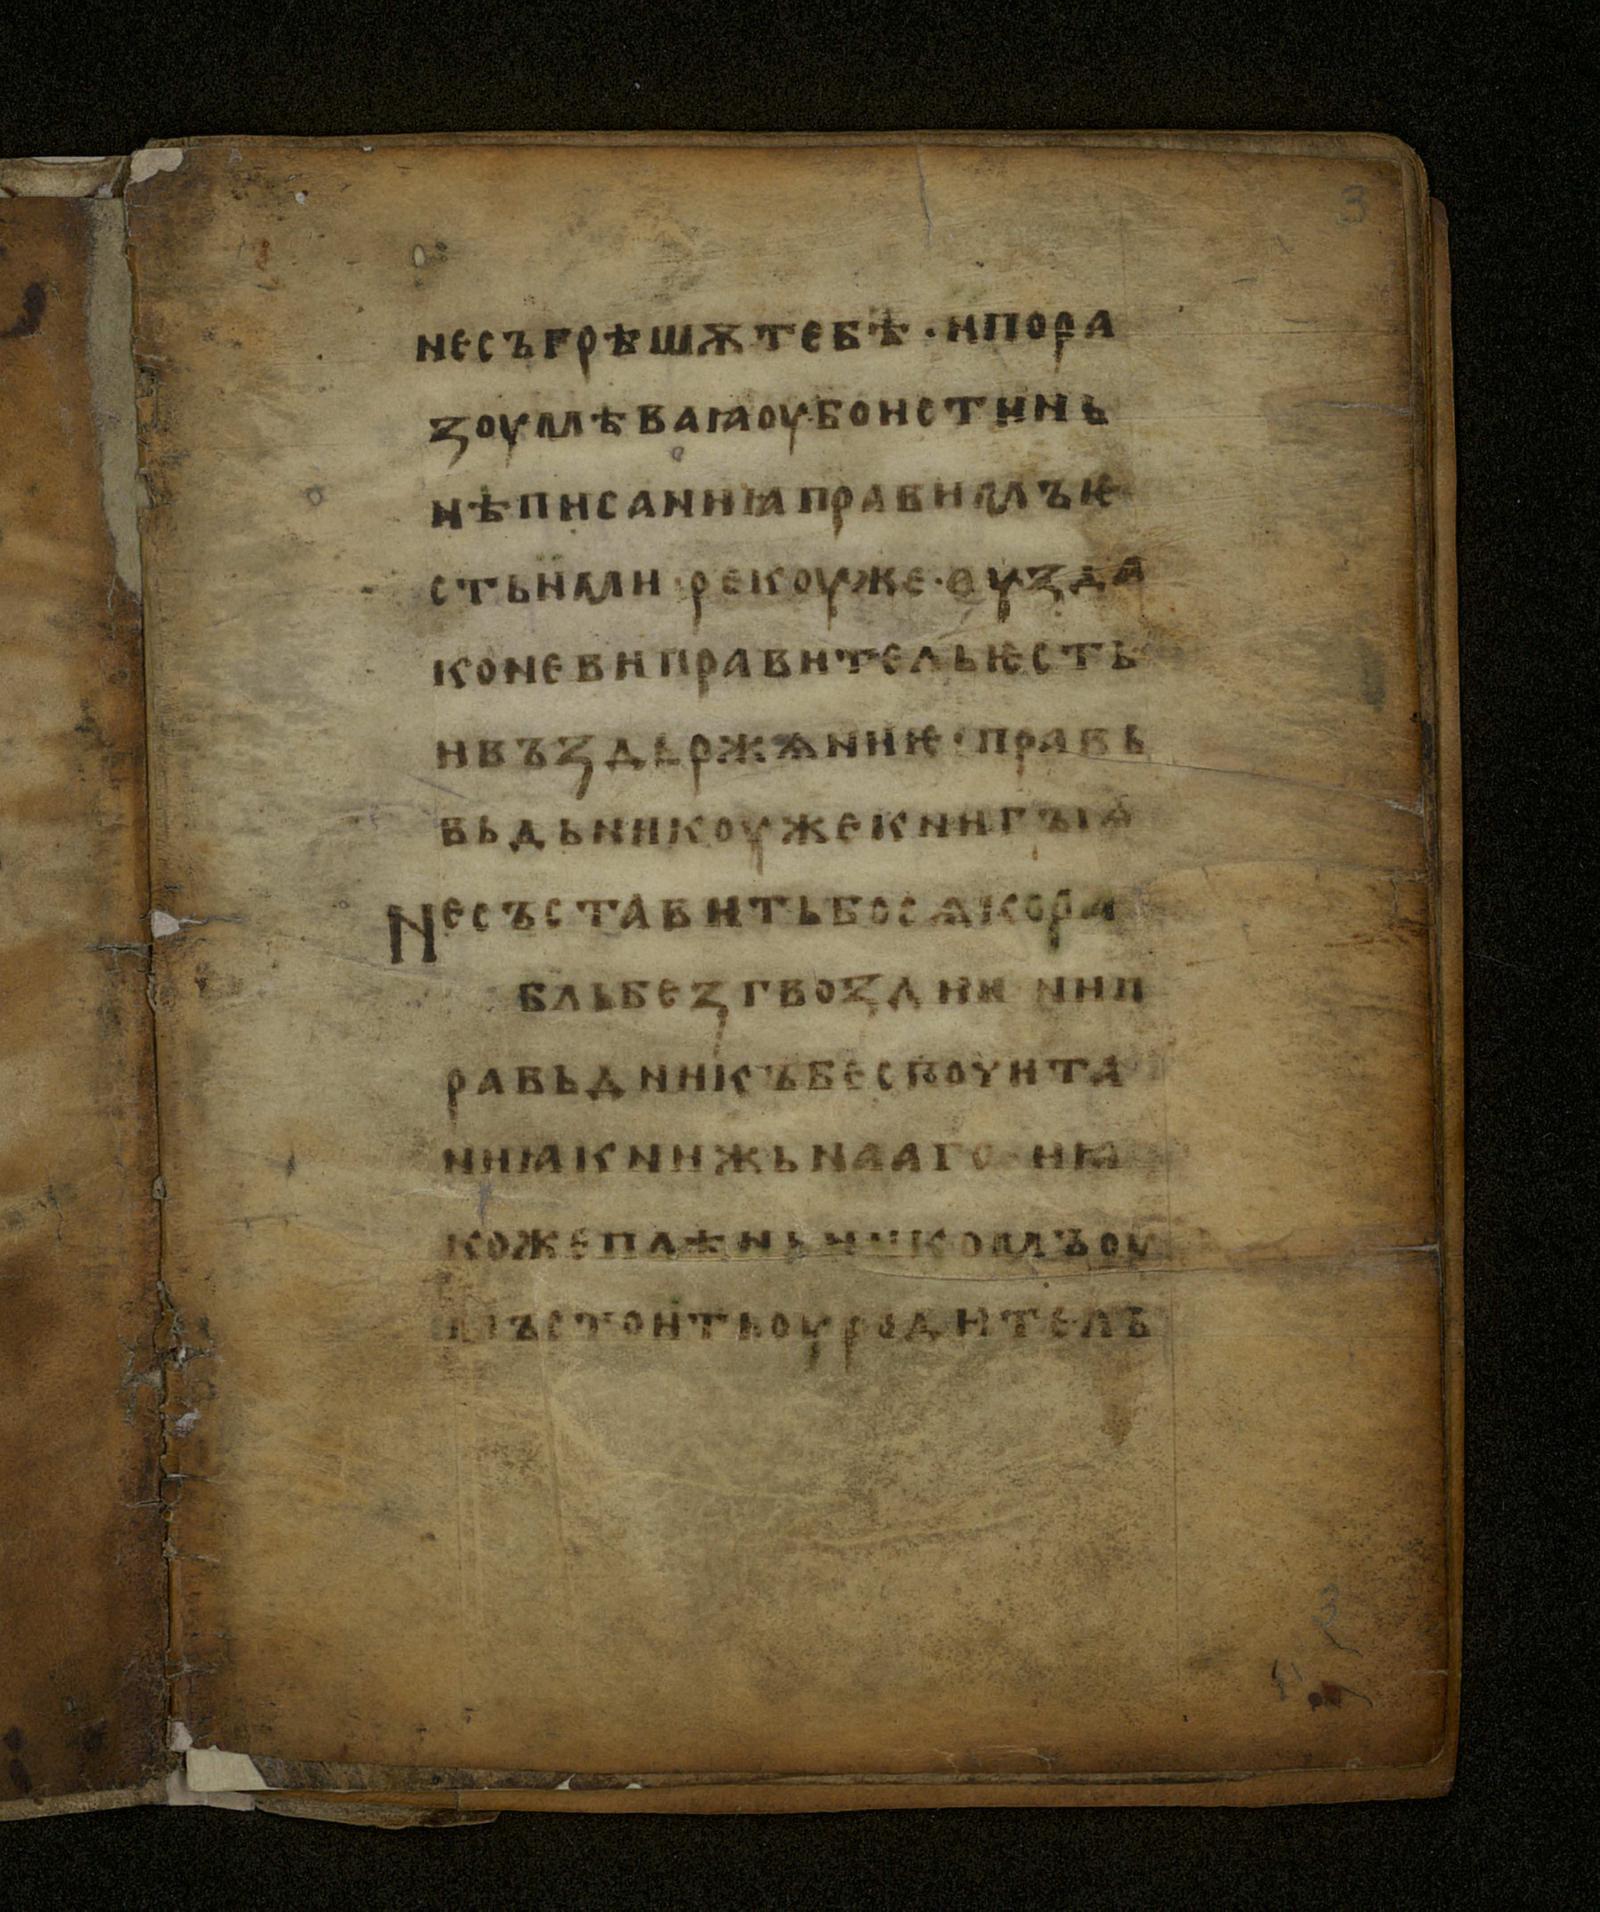 3
несъгрѣшѫтебѣ·ипора
зоумѣваꙗоубоистинь
нѣписаниꙗправимъѥ
стьнами·рекоуже·оузда
коневиправительѥсть
ивъздьржѧниѥ·правь
вьдьникоужекнигъıѧ
Неставитьбосѧкора
бльбезгвоздии нип
равьдникъбеспоꙋита
ниꙗкнижьнааго иꙗ
кожеплѣньникомъоу
мъстоитьоуродитель
3